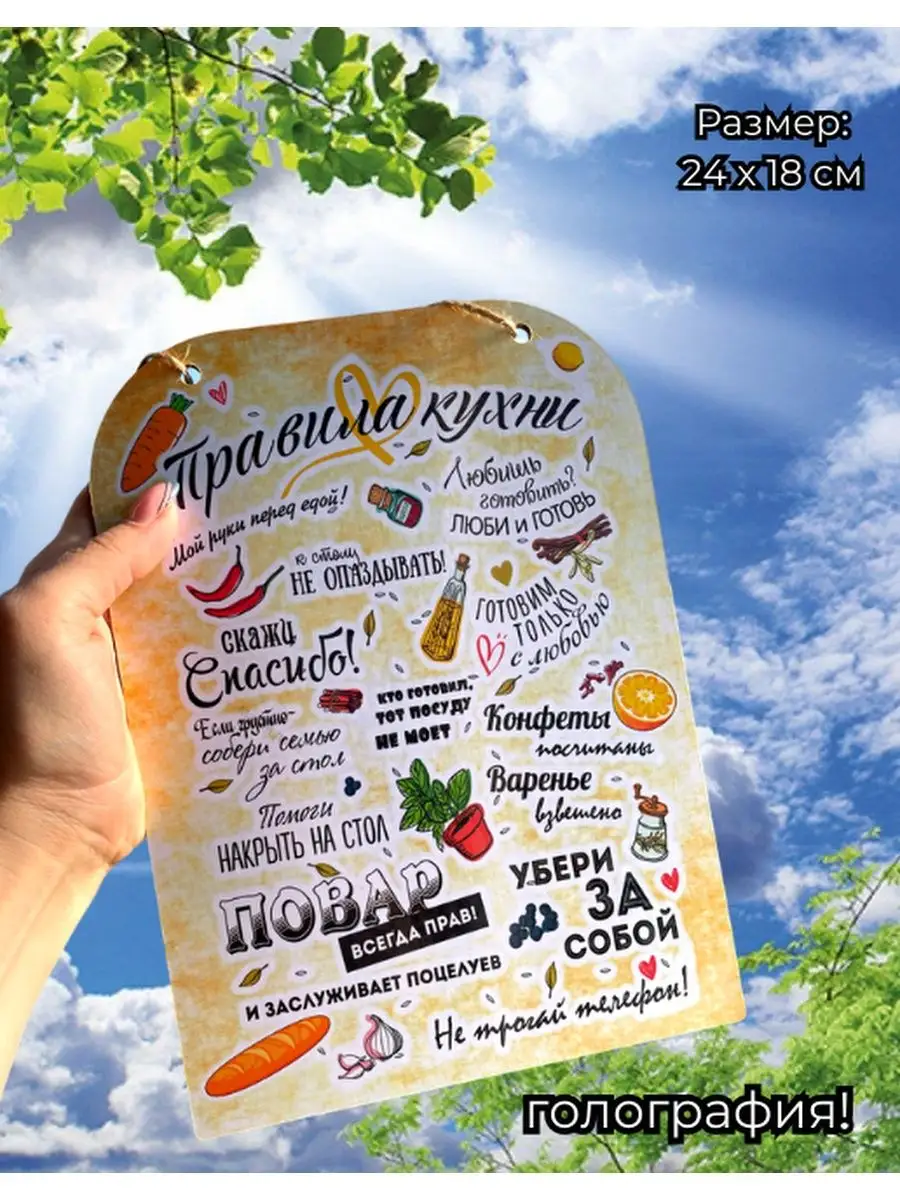 Размер:
24 x 18 см
Правила кухни
Мой руки перед едой!
Любишь
готовить?
ЛЮБИ И ГОТОВЬ
к столу
НЕ ОПАЗДЫВАТЬ!
ГОТОВИМ
ТОЛЬКО
с любовью
СКАЖИ
Спасибо!
КТО ГОТОВИЛ,
ТОТ ПОСУДУ
НЕ МОЕТ
Если грустно-
собери семью
за стол
Конфеты
посчитаны
Варенье
взвешено
Помоги
НАКРЫТЬ НА СТОЛ
ПОВАР
ВСЕГДА ПРАВ!
И ЗАСЛУЖИВАЕТ ПОЦЕЛУЕВ
УБЕРИ
ЗА
СОБОЙ
Не трогай телефон!
голография!